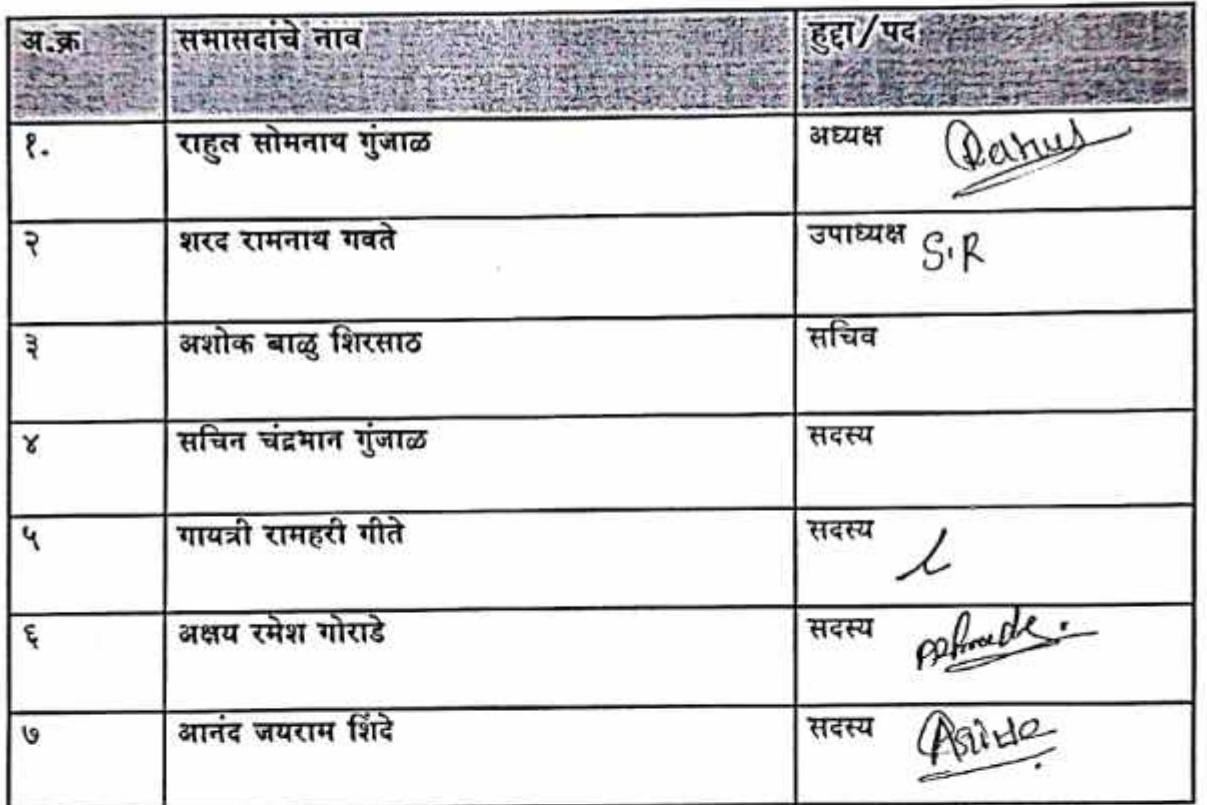 अ.क्र सभासदांचे नाव हुद्दा/पद
१. राहुल सोमनाथ गुंजाळ अध्यक्ष Rahul
२ शरद रामनाथ गवते उपाध्यक्ष S.R
३ अशोक बाळु शिरसाठ सचिव
४ सचिन चंद्रभान गुंजाळ सदस्य
५ गायत्री रामहरी गीते सदस्य
६ अक्षय रमेश गोराडे सदस्य
७ आनंद जयराम शिंदे सदस्य